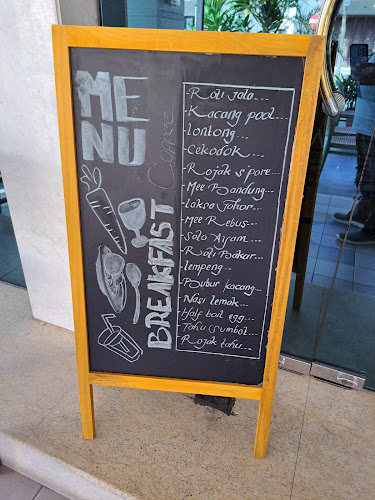 MENU
BREAKFAST
- Roti jala---
- Kacang pool---
- lontong---
- Cekodok---
- Rojak s'pore---
- Mee Bandung---
- laksa Johor---
- Mee Rebus---
- Soto Ayam---
- Roti Bakar---
- lempeng---
- Bubur kacang---
- Nasi lemak---
- Half boil egg---
- Tahu Sumbat---
- Rojak tahu---